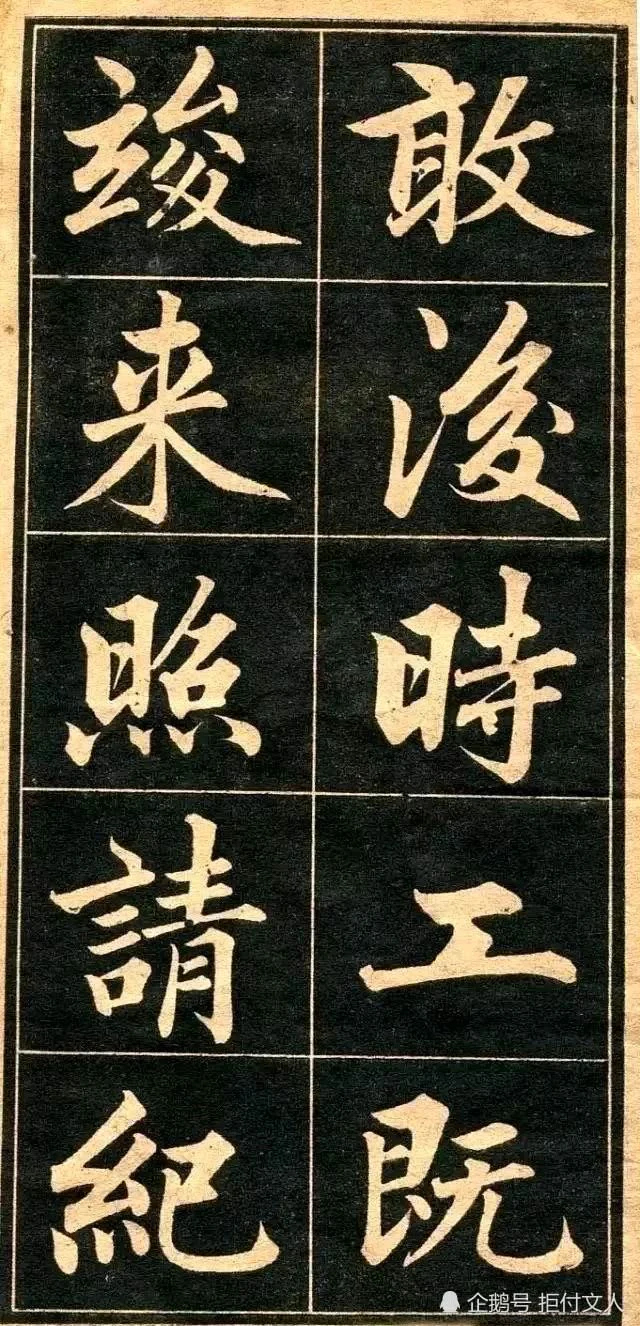 敢後時工既
竣来照請紀
企鹅号 拒付文人